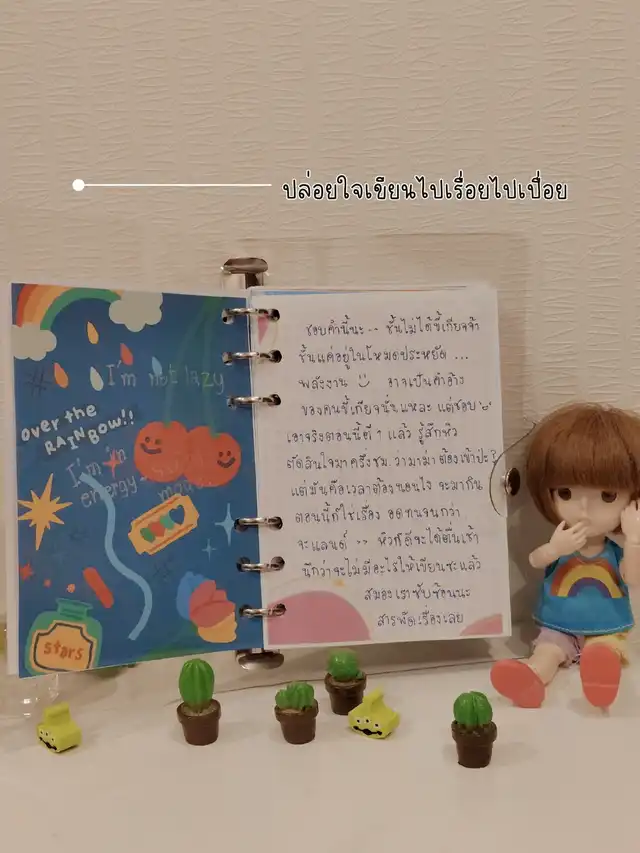 ปล่อยใจเขียนไปเรื่อยไปเปื่อย
I'm not lazy
over the
RAINBOW!!
I'm in
energy-
stars
ชอบคำนี้นะ -- ชั้นไม่ได้ขี้เกียจจ้า
ชั้นแค่อยู่ในโหมดประหยัด ...
พลังงาน อาจเป็นคำอ้าง
ของคนขี้เกียจนั่นแหละ แต่ชอบ
เอาจริงตอนนี้ตี 1 แล้ว รู้สึกหิว
ตัดสินใจมาครึ่งชม. ว่ามาม่าต้องเข้าปะ?
แต่มันคือเวลาต้องนอนไง จะมากิน
ตอนนี้ก็ใช่เรื่อง อดทนจนกว่า
จะแลนด์ -- หิวก็ดีจะได้ตื่นเช้า
นึกว่าจะไม่มีอะไรให้เขียนซะแล้ว
สมองเราซับซ้อนนะ
สารพัดเรื่องเลย